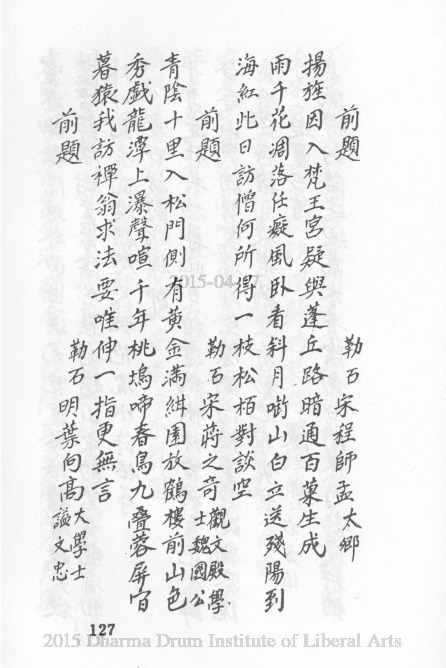 前題　勒石宋程師孟太卿
揚旌因入梵王宮疑與蓬丘路暗通百菓生成
雨千花凋落任癡風臥看斜月啣山白立送殘陽到
海紅此日訪僧何所得一枝松栢對談空
前題　勒石宋蔣之奇觀文殿學士魏國公
青陰十里入松門側有黃金滿紺園放鶴樓前山色
秀戲龍潭上瀑聲喧千年桃塢啼春鳥九疊蓉屏宿
暮猿我訪禪翁求法要唯伸一指更無言
前題　勒石明葉向高大學士謚文忠
127
2015 Dharma Drum Institute of Liberal Arts